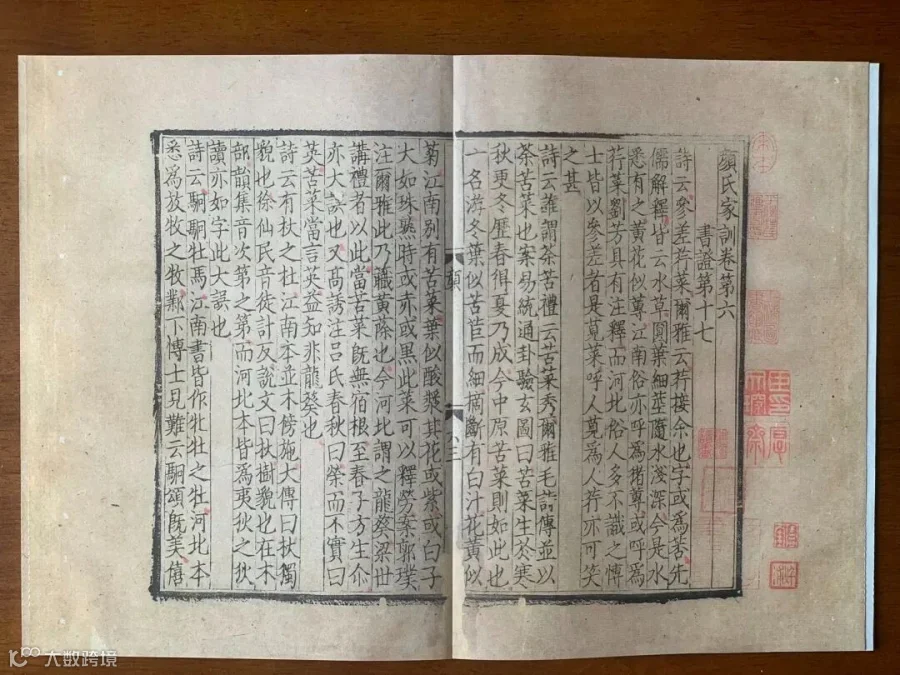 顏氏家訓卷第六
書證第十七
詩云參差荇菜爾雅云荇接余也字或爲莕先
儒解釋皆云水草圓葉細莖隨水淺深今是水
悉有之黃花似蓴江南俗亦呼爲猪蓴或呼爲
荇菜劉芳具有注釋而河北俗人多不識之博
士皆以參差者是莧菜呼人莧爲人荇亦可笑
之甚
詩云誰謂荼苦禮云苦菜秀爾雅毛詩傳並以
荼苦菜也案易統通卦驗玄圖曰苦菜生於寒
秋更冬歷春得夏乃成今中原苦菜則如此也
一名游冬葉似苦苣而細摘斷有白汁花黃似
顏
六三
菊江南別有苦菜葉似酸漿其花或紫或白子
大如珠熟時或赤或黑此菜可以釋勞案郭璞
注爾雅此乃蘵黃蒢也今河北謂之龍葵梁世
講禮者以此當苦菜旣無宿根至春子方生尒
亦大誤也又髙誘注呂氏春秋曰榮而不實曰
英苦菜當言英益知非龍葵也
詩云有杕之杜江南本並木傍施大傳曰杕獨
貌也徐仙民音徒計反說文曰杕樹貌也在木
部韻集音次第之第而河北本皆爲夷狄之狄
讀亦如字此大誤也
詩云駉駉牡馬江南書皆作牝牡之牡河北本
悉爲放牧之牧鄴下博士見難云駉頌旣美僖
大数跨境